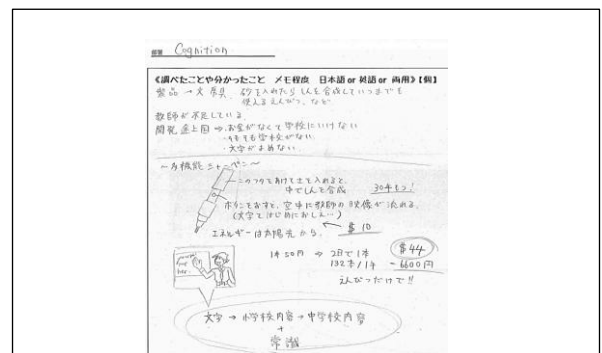 Cognition
《調べたことや分かったこと メモ程度 日本語 or 英語 or 両用》【個】
製品 → 文房具 砂を入れたらしんを合成していつまでも
使えるえんぴつ、など
教師が不足している
開発途上国 ⇒ ・お金がなくて学校にいけない
・そもそも学校がない
・文字がよめない
〜多機能シャーペン〜
このフタをあけてすなを入れると、
中でしんを合成 30年もつ!
ボタンをおすと、空中に教師の映像が流れる。
(文字をはじめにおしえ…)
エネルギーは太陽光から。 $10
1本50円 ⇒ 2日で1本 $44
132本/1年 = 6600円
えんぴつだけで!!
文字 → 小学校内容 → 中学校内容
+
常識